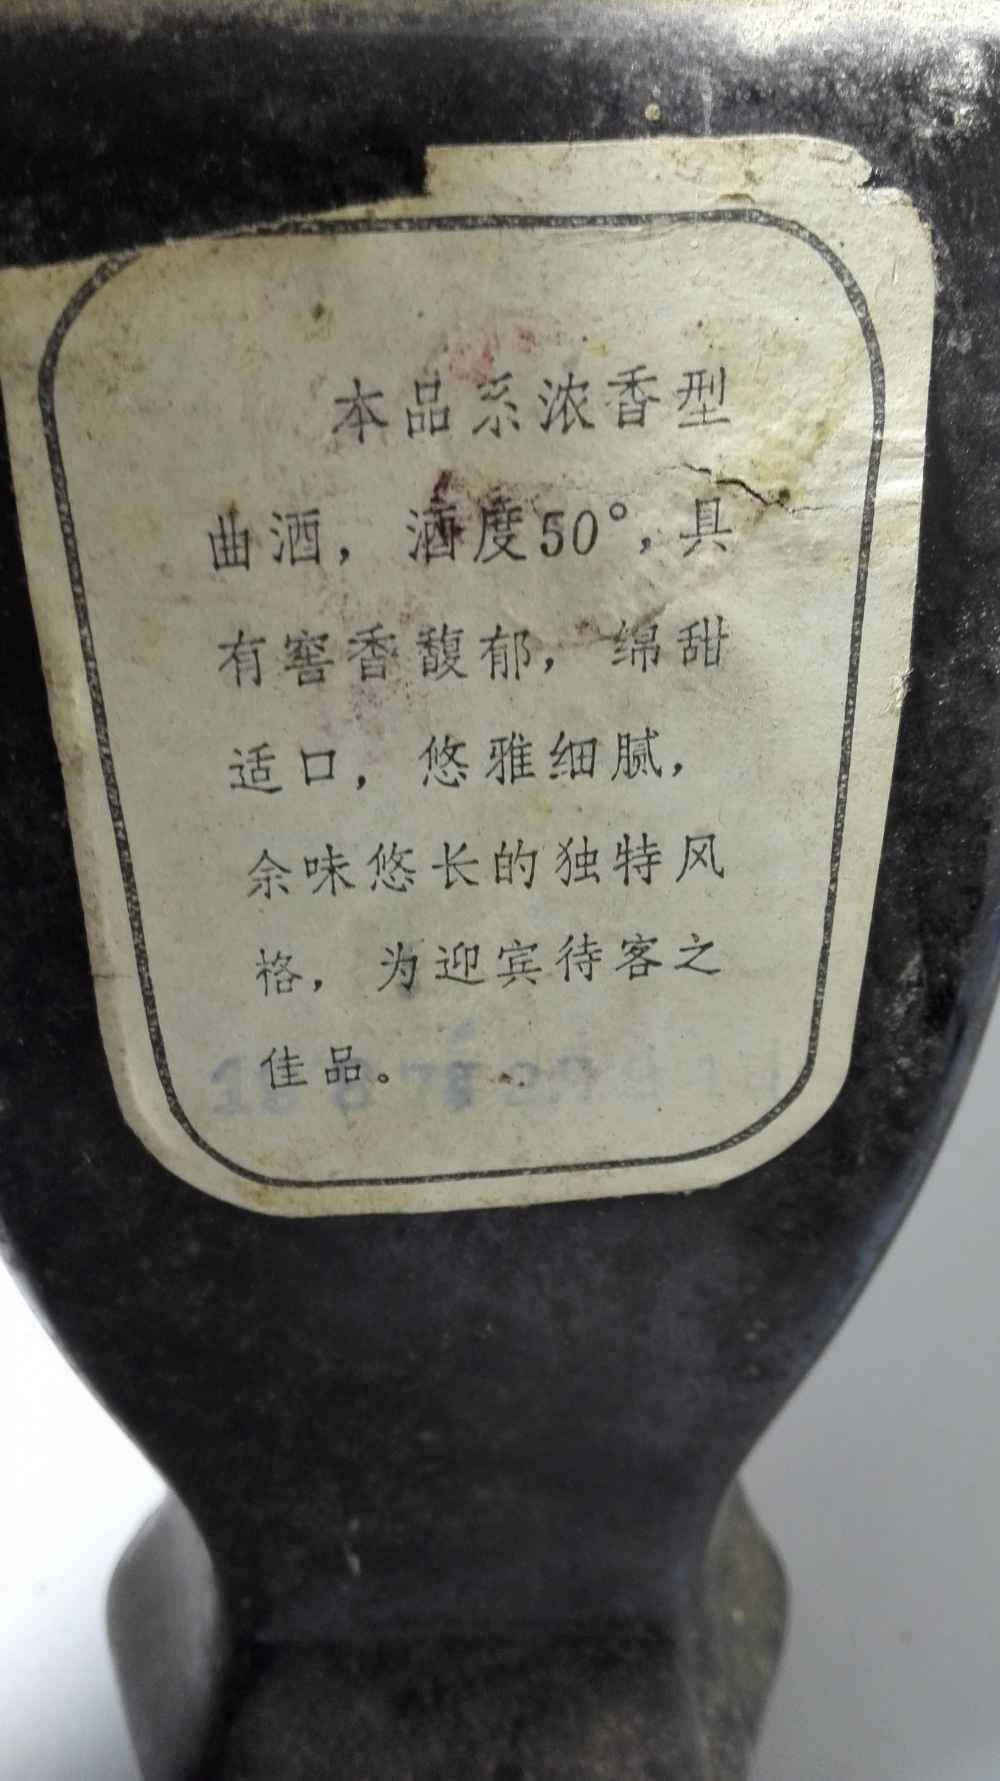 本品系浓香型
曲酒，酒度50°，具
有窖香馥郁，绵甜
适口，悠雅细腻，
余味悠长的独特风
格，为迎宾待客之
佳品。